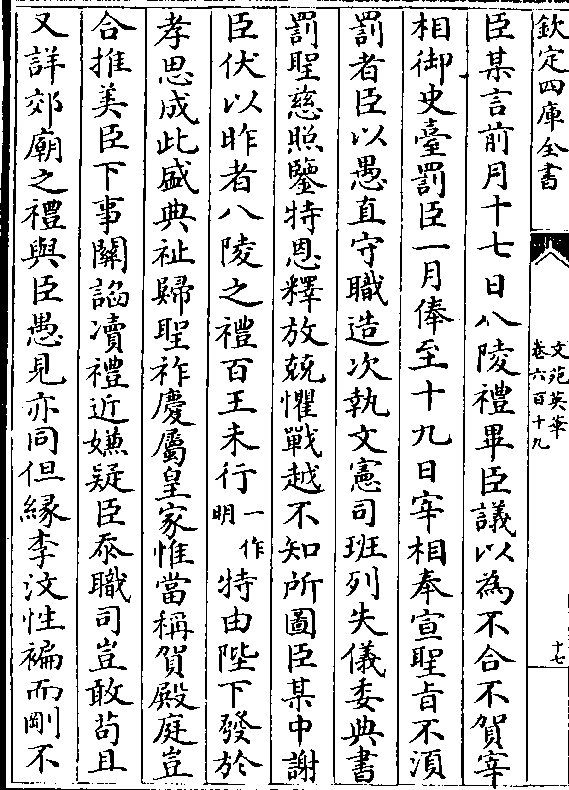 欽定四庫全書
文苑英華
卷六百十九
十七
臣某言前月十七日八陵禮畢臣議以為不合不賀宰
相御史臺罰臣一月俸至十九日宰相奉宣聖旨不須
罰者臣以愚直守職造次執文憲司班列失儀委典書
罰聖慈照鑒特恩釋放兢懼戰越不知所圖臣某中謝
臣伏以昨者八陵之禮百王未行一作明特由陛下發於
孝思成此盛典祉歸聖祚慶屬皇家惟當稱賀殿庭豈
合推美臣下事關諂瀆禮近嫌疑臣忝職司豈敢苟且
又詳郊廟之禮與臣愚見亦同但緣李汶性褊而剛不